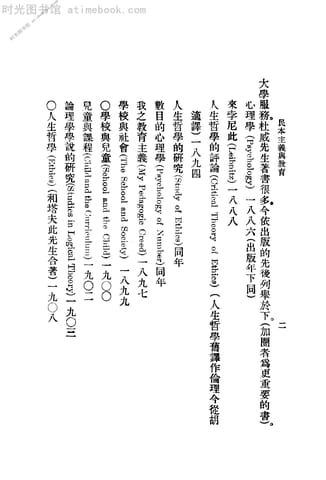 时光图书馆 atimebook.com
时光图书馆 atimebook.com
民本主義與教育
二
大學服務。杜威先生著書很多。今依出版的先後列舉於下。(加圈者爲更重要的書)。
心理學 (Psychology) 一八八六 (出版年下同)
來孛尼此 (Leibnitz) 一八八八
人生哲學的討論 (Critical Theory of Ethics) (人生哲學舊譯作倫理今從胡
適譯) 一八九四
人生哲學的研究 (Study of Ethics) 同年
數目的心理學 (Psychology of Number) 同年
我之教育主義 (My Pedagogic Creed) 一八九七
學校與社會 (The School and Society) 一八九九
〇學校與兒童 (School and the Child) 一九〇〇
兒童與課程 (Child and the Curriculum) 一九〇二
論理學學說的研究 (Studies in Logical Theory) 一九〇三
〇人生哲學 (Ethics) (和塔夫此先生合著) 一九〇八